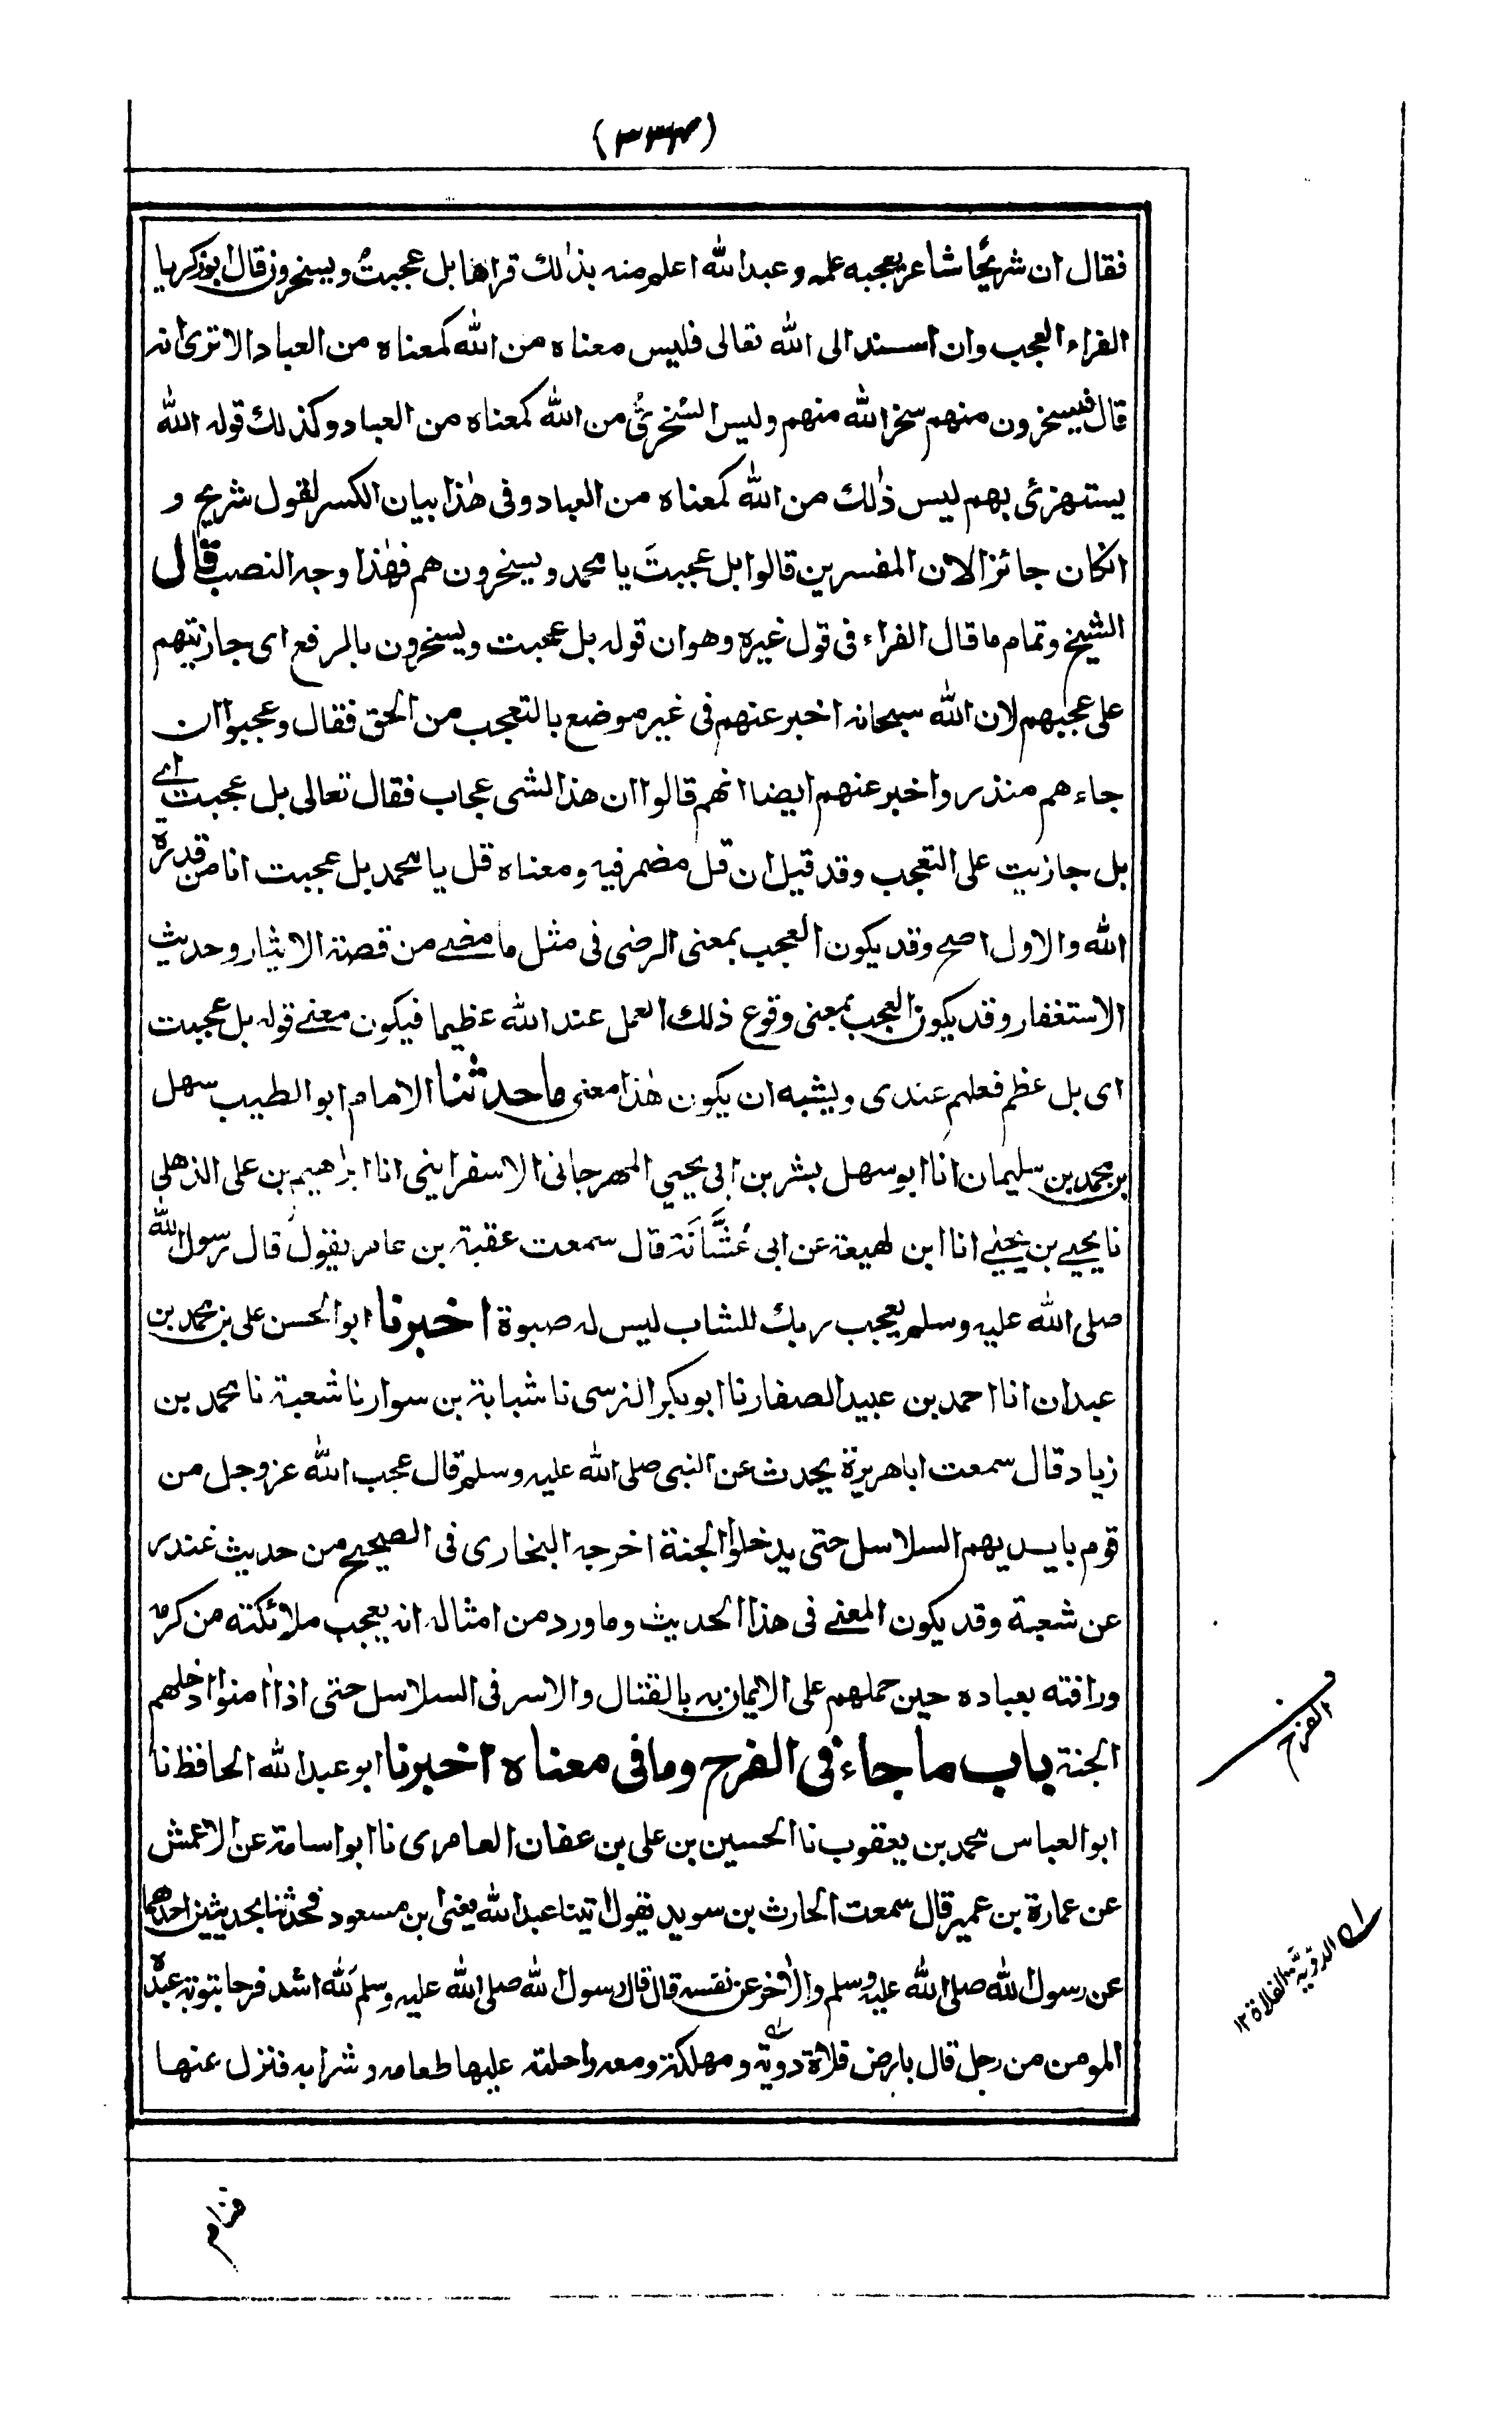 (٣٣٤)
فقال ان شريحًا شاعر يعجبه علمه وعبد الله اعلم منه بذٰلك قراها بل عجبتُ ويسخرون قال ابو زكريا
الفراء العجب وان اسند الى الله تعالى فليس معناه من الله كمعناه من العباد الا ترى انه
قال فيسخرون منهم سخر الله منهم وليس السُخرىُّ من الله كمعناه من العباد وكذلك قوله الله
يستهزئ بهم ليس ذٰلك من الله كمعناه من العباد وفى هٰذا بيان الكسر لقول شريح و
انكان جائزا لان المفسرين قالوا بل عجبتَ يا محمد ويسخرون هم فهٰذا وجه النصب قال
الشيخ وتمام ما قال الفراء فى قول غيره وهو ان قوله بل عجبت ويسخرون بالرفع اى جازيتهم
على عجبهم لان الله سبحانه اخبر عنهم فى غير موضع بالتعجب من الحق فقال وعجبوا ان
جاءهم منذر واخبر عنهم ايضا انهم قالوا ان هذا لشى عجاب فقال تعالى بل عجبت اے
بل جازيت على التعجب وقد قيل ان قل مضمر فيه ومعناه قل يا محمد بل عجبت انا من قدرة
الله والاول اصح وقد يكون العجب بمعنى الرضى فى مثل ما مضے من قصة الايثار وحديث
الاستغفار وقد يكون العجب بمعنى وقوع ذلك العمل عند الله عظيما فيكون معنے قوله بل عجبت
اى بل عظم فعلهم عندى ويشبه ان يكون هٰذا معنى ما حدثنا الامام ابو الطيب سهل
بن محمد بن سليمان انا ابو سهل بشر بن ابى يحيي المهرجانى الاسفراينى انا ابراهيم بن على الذهلى
نا يحيے بن يحيے انا ابن لهيعة عن ابى عُشَّانَة قال سمعت عقبة بن عامر يقول قال رسول الله
صلى الله عليه وسلم يعجب ربك للشاب ليس له صبوة اخبرنا ابو الحسن على بن محمد بن
عبدان انا احمد بن عبيد الصفار نا ابو بكر النرسى نا شبابة بن سوار نا شعبة نا محمد بن
زياد قال سمعت ابا هريرة يحدث عن النبى صلى الله عليه وسلم قال عجب الله عز وجل من
قوم بايديهم السلاسل حتى يدخلوا الجنة اخرجه البخارى فى الصحيح من حديث غندر
عن شعبة وقد يكون المعنے فى هذا الحديث وما ورد من امثاله انه يعجب ملائكته من كرمه
ورافته بعباده حين حملهم على الايمان به بالقتال والاسر فى السلاسل حتى اذا اٰمنوا ادخلهم
الجنة باب ما جاء فى الفرح وما فى معناه اخبرنا ابو عبد الله الحافظ نا
ابو العباس محمد بن يعقوب نا الحسين بن على بن عفان العامرى نا ابو اسامة عن الاعمش
عن عمارة بن عمير قال سمعت الحارث بن سويد يقول اتينا عبد الله يعنى ابن مسعود فحدثنا بحديثين احدهما
عن رسول الله صلى الله عليه وسلم والاٰخر عن نفسه قال قال رسول الله صلى الله عليه وسلم لَله اشد فرحا بتوبة عبده
المومن من رجل قال بارض فلاة دوية ومهلكة ومعه راحلته عليها طعامه وشرابه فنزل عنها
الفرح
الدوّيّة الفلاة ١٢
فنام